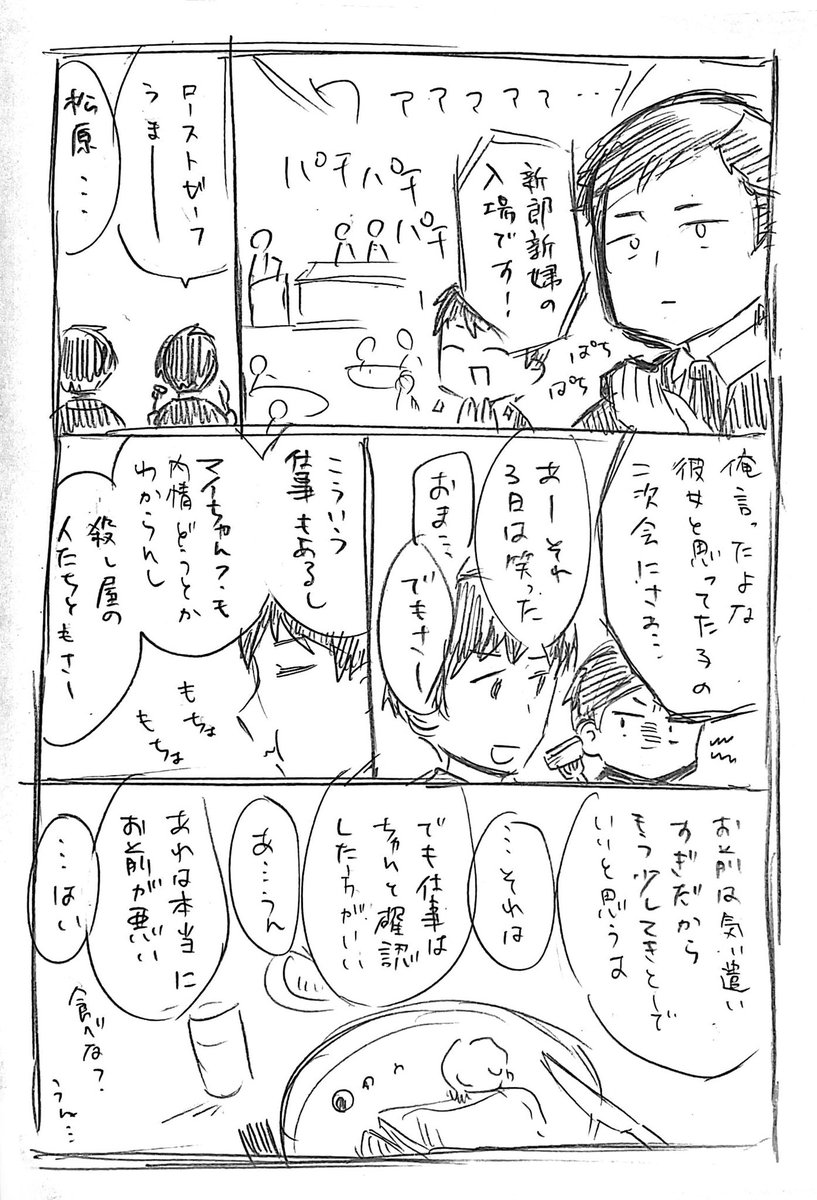 ワアアアアア…
新郎新婦の
入場です!
パチパチ
パチ
ぱち
ぱち
ローストビーフ
うまー
松原…
俺言ったよな
彼女と思ってた子の
二次会にさぁ…
あーそれ
3日は笑った
おま…
でもさー
こういう
仕事もあるし
マイちゃん?も
内情どうとか
わからんし
殺し屋の
人たちともさー
もちょ
もちょ
お前は気い遣い
すぎだから
もう少してきとーで
いいと思うな
…それは
でも仕事は
ちゃんと確認
した方がいい
あ…うん
あれは本当に
お前が悪い
…はい
食べな?
うん…